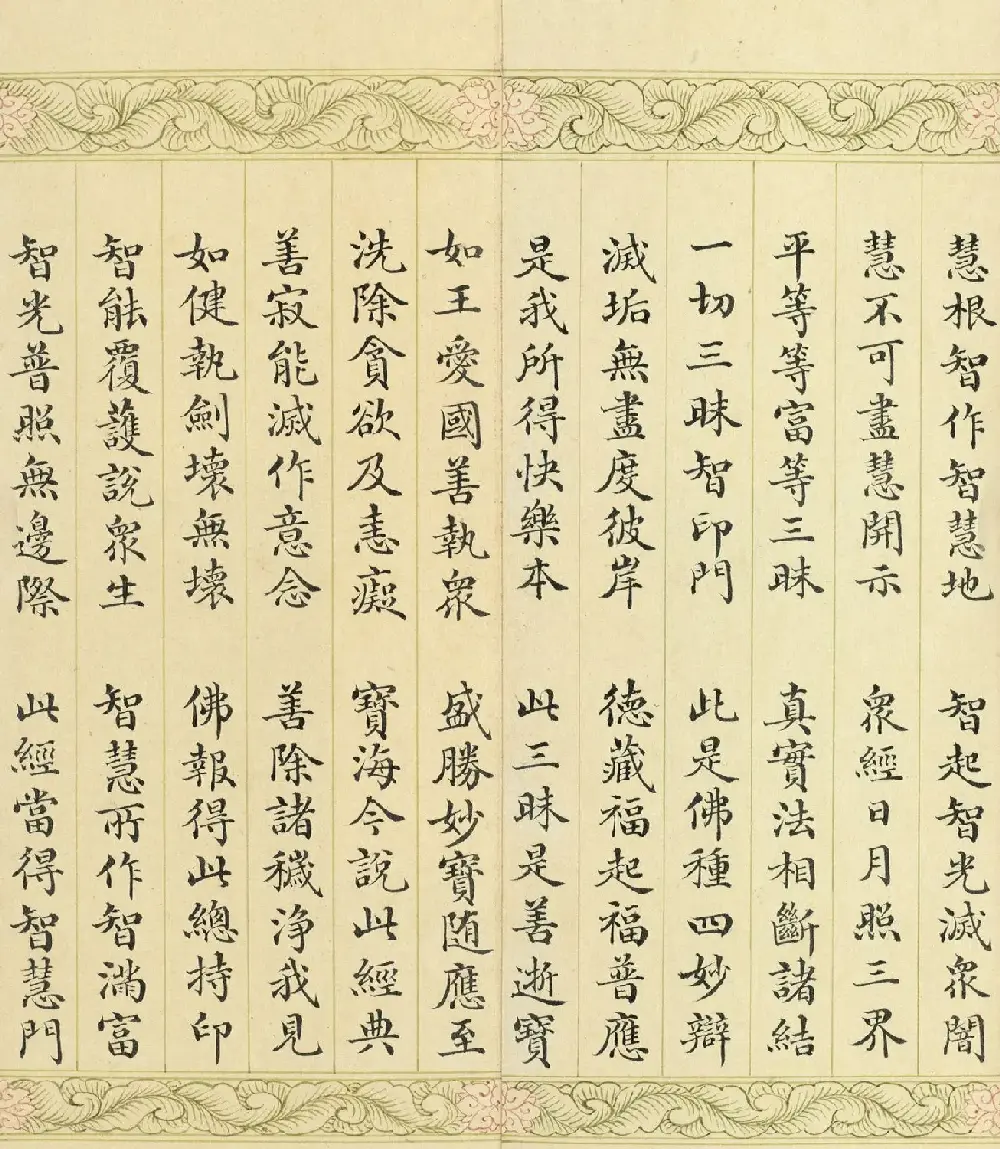 慧根智作智慧地 智起智光滅衆闇
慧不可盡慧開示 衆經日月照三界
平等等富等三昧 真實法相斷諸結
一切三昧智印門 此是佛種四妙辯
滅垢無盡度彼岸 德藏福起福普應
是我所得快樂本 此三昧是善逝寶
如王愛國善執衆 盛勝妙寶随應至
洗除貪欲及恚癡 寶海今說此經典
善寂能滅作意念 善除諸穢淨我見
如健執劍壞無壞 佛報得此總持印
智能覆護說衆生 智慧所作智滿富
智光普照無邊際 此經當得智慧門